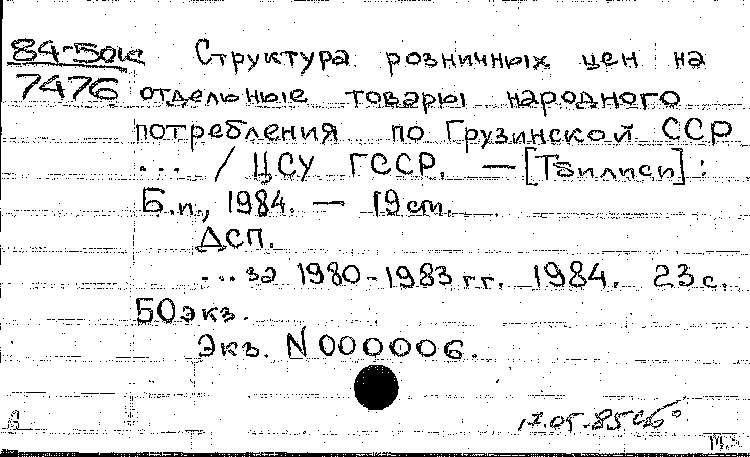 84-50к Структура розничных цен на
7476 отдельные товары народного
потребления по Грузинской ССР
... / ЦСУ ГССР. — [Тбилиси] :
Б.и., 1984. — 19 см.
ДСП.
...за 1980-1983 гг. 1984. 23 с.
50 экз.
Экз. N 000006.